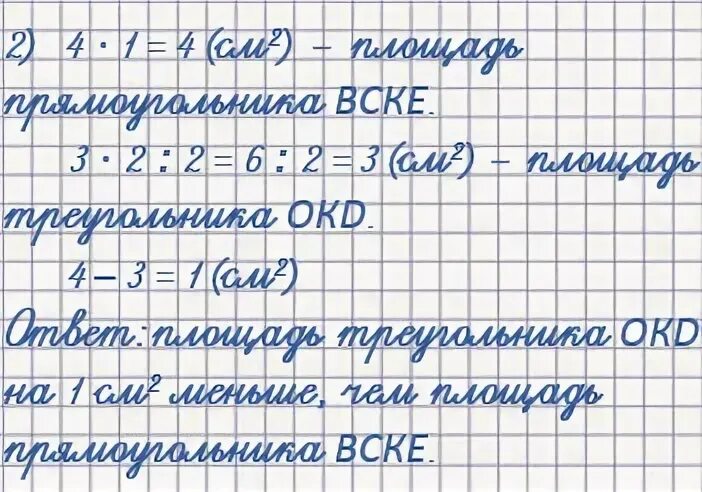 2) 4 · 1 = 4 (см²) – площадь
прямоугольника ВСКЕ.
3 · 2 : 2 = 6 : 2 = 3 (см²) – площадь
треугольника ОКD.
4 – 3 = 1 (см²)
Ответ: площадь треугольника ОКD
на 1 см² меньше, чем площадь
прямоугольника ВСКЕ.